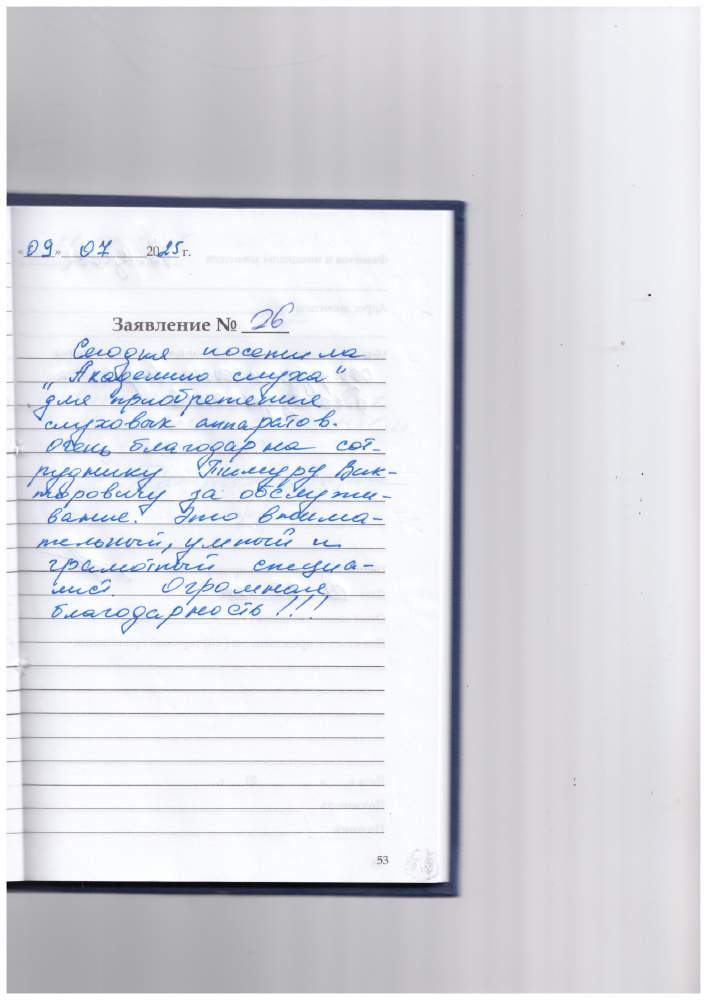 «09» 07 2025 г.
Заявление № 26
Сегодня посетила
"Академию слуха"
для приобретения
слуховых аппаратов.
Очень благодарна сот-
руднику Тимуру Вик-
торовичу за обслужи-
вание. Это внима-
тельный, умный и
грамотный специа-
лист. Огромная
благодарность!!!
53